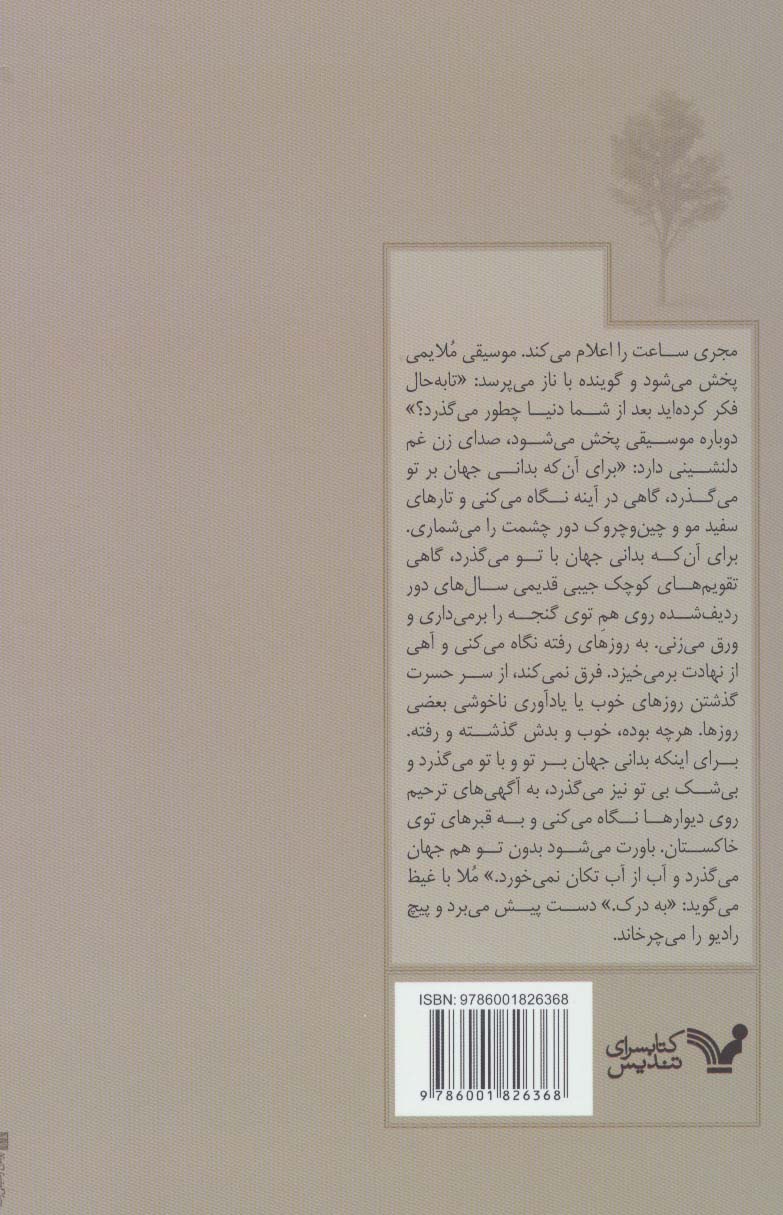 مجری ساعت را اعلام می‌کند. موسیقی مُلایمی
پخش می‌شود و گوینده با ناز می‌پرسد: «تابه‌حال
فکر کرده‌اید بعد از شما دنیا چطور می‌گذرد؟»
دوباره موسیقی پخش می‌شود، صدای زن غم
دلنشینی دارد: «برای آن‌که بدانی جهان بر تو
می‌گذرد، گاهی در آینه نگاه می‌کنی و تارهای
سفید مو و چین‌وچروک دور چشمت را می‌شماری.
برای آن‌که بدانی جهان با تو می‌گذرد، گاهی
تقویم‌های کوچک جیبی قدیمی سال‌های دور
ردیف‌شده روی همِ توی گنجه را برمی‌داری و
ورق می‌زنی. به روزهای رفته نگاه می‌کنی و آهی
از نهادت برمی‌خیزد. فرق نمی‌کند، از سر حسرت
گذشتن روزهای خوب یا یادآوری ناخوشی بعضی
روزها. هرچه بوده، خوب و بدش گذشته و رفته.
برای اینکه بدانی جهان بر تو و با تو می‌گذرد و
بی‌شک بی تو نیز می‌گذرد، به آگهی‌های ترحیم
روی دیوارها نگاه می‌کنی و به قبرهای توی
خاکستان. باورت می‌شود بدون تو هم جهان
می‌گذرد و آب از آب تکان نمی‌خورد.» مُلا با غیظ
می‌گوید: «به درک.» دست پیش می‌برد و پیچ
رادیو را می‌چرخاند.
ISBN: 9786001826368
9 786001 826368
کتابسرای
تندیس